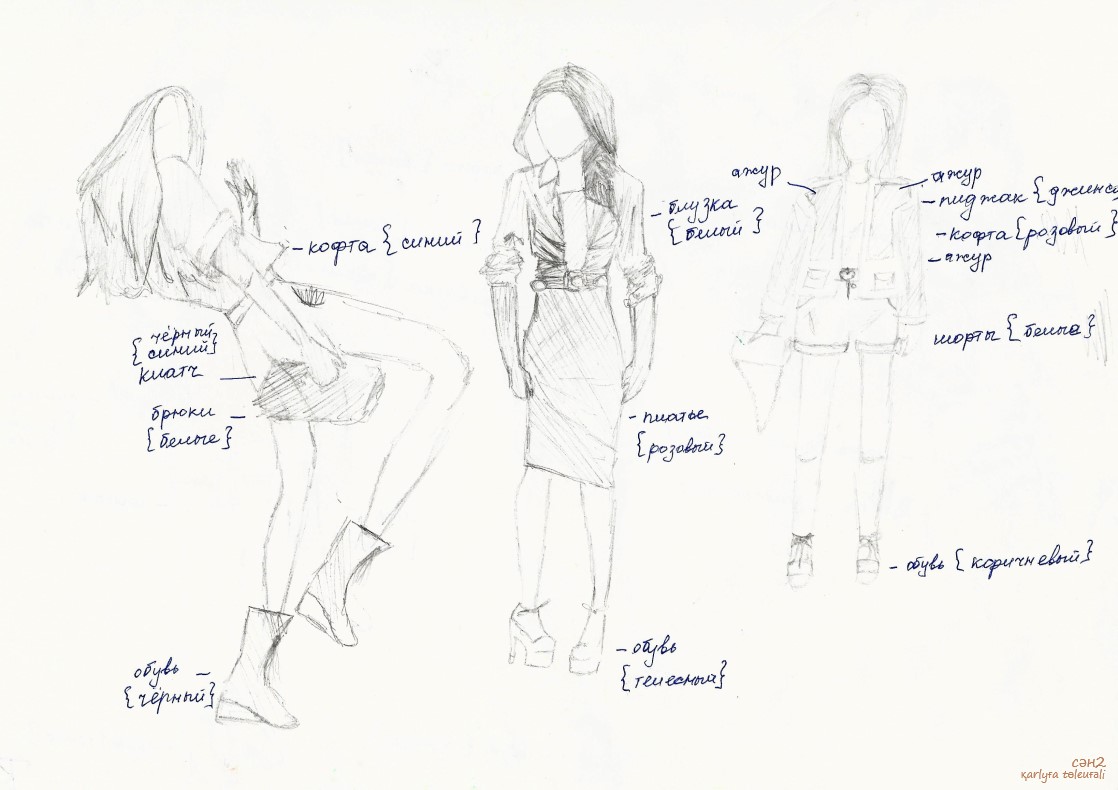 - кофта {синий}
{чёрный
синий}
клатч
брюки
{белые}
обувь
{чёрный}
- блузка
{белый}
- платье
{розовый}
- обувь
{телесный}
ажур
ажур
- пиджак {джинсо
- кофта {розовый}
- ажур
шорты {белые}
- обувь {коричневый}
сән2
қarlyға tөleuғali